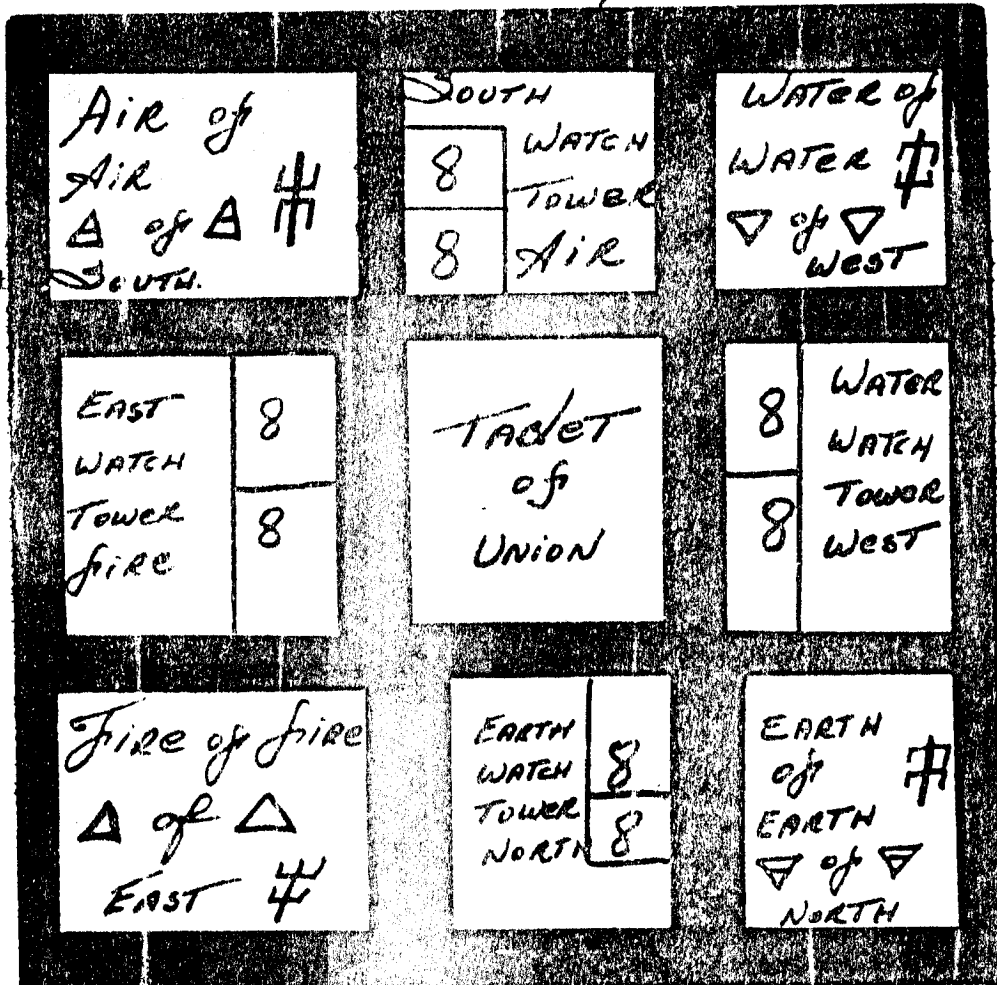 AiR of
AiR
of
South.
South
8
8
WATCH
TOWER
AiR
WATER of
WATER
of
WEST
EAST
WATCH
TOWER
fiRe
8
8
TABLET
of
UNiON
8
8
WATER
WATCH
TOWER
WEST
FiRe of fiRe
of
EAST
EARTH
WATCH
TOWER
NORTH
8
8
EARTH
of
EARTH
of
NORTH